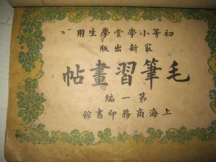 初等小學堂學生用
最新出版
毛筆習畫帖
第一編
上海商務印書館